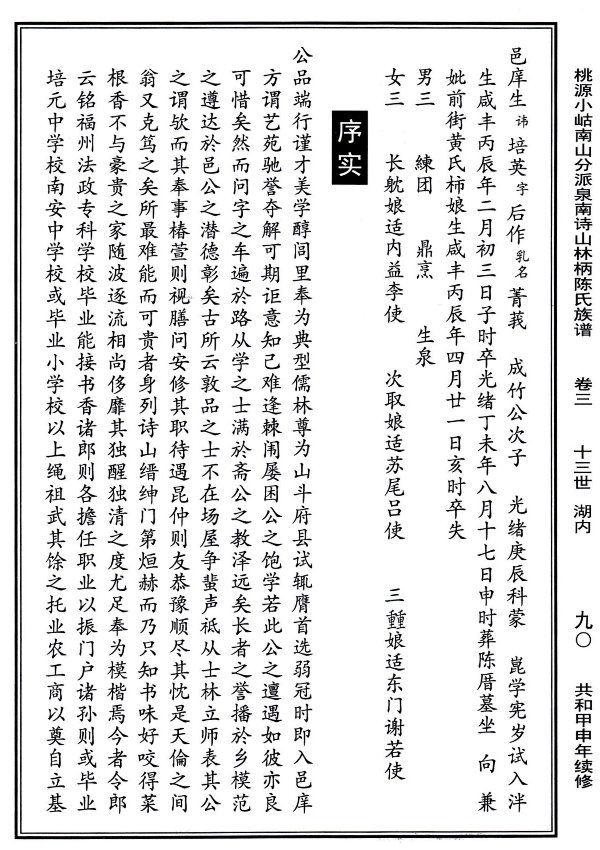 桃源小岵南山分派泉南诗山林柄陈氏族谱 卷三 十三世 湖内 九〇 共和甲申年续修
邑庠生 讳 培英 字 后作 乳名 菁莪 成竹公次子 光绪庚辰科蒙 崑学宪岁试入泮
生咸丰丙辰年二月初三日子时卒光绪丁未年八月十七日申时葬陈厝墓坐 向 兼
妣前街黄氏柿娘生咸丰丙辰年四月廿一日亥时卒失
男三 練团 鼎烹 生泉
女三 长躭娘适内益李使 次取娘适苏尾吕使 三 娘适东门谢若使
序实
公品端行谨才美学醇闾里奉为典型儒林尊为山斗府县试辄膺首选弱冠时即入邑庠
方谓艺苑驰誉夺解可期讵意知己难逢棘闱屡困公之饱学若此公之邅遇如彼亦良
可惜矣然而问字之车遍於路从学之士满於斋公之教泽远矣长者之誉播於乡模范
之遵达於邑公之潜德彰矣古所云敦品之士不在场屋争蜚声祗从士林立师表其公
之谓欤而其奉事椿萱则视膳问安修其职待遇昆仲则友恭豫顺尽其忱是天倫之间
翁又克笃之矣所最难能而可贵者身列诗山缙绅门第烜赫而乃只知书味好咬得菜
根香不与豪贵之家随波逐流相尚侈靡其独醒独清之度尤足奉为模楷焉今者令郎
云铭福州法政专科学校毕业能接书香诸郎则各担任职业以振门户诸孙则或毕业
培元中学校南安中学校或毕业小学校以上绳祖武其馀之托业农工商以奠自立基